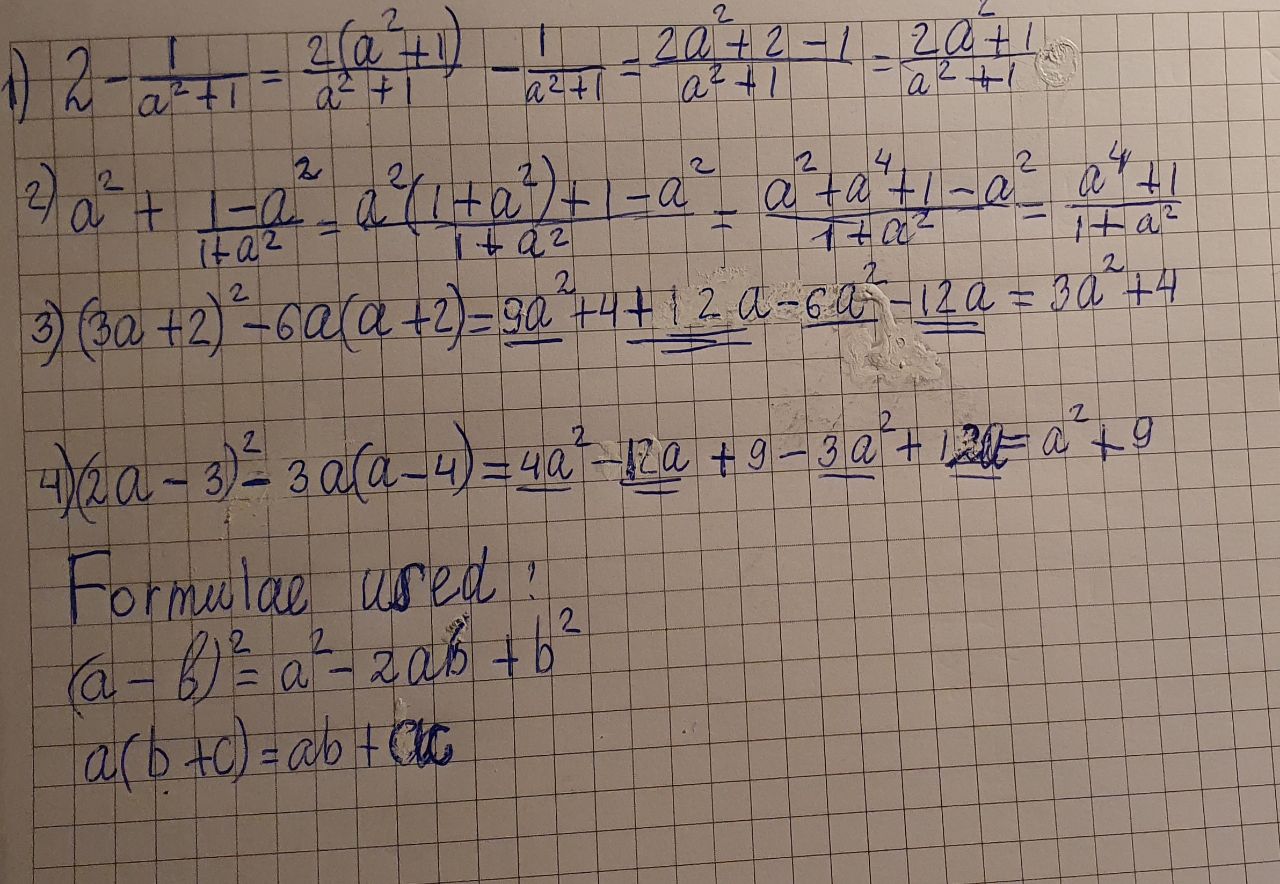 1) 2 - 1/(a² + 1) = 2(a² + 1)/(a² + 1) - 1/(a² + 1) = (2a² + 2 - 1)/(a² + 1) = (2a² + 1)/(a² + 1)
2) a² + (1 - a²)/(1 + a²) = (a²(1 + a²) + 1 - a²)/(1 + a²) = (a² + a⁴ + 1 - a²)/(1 + a²) = (a⁴ + 1)/(1 + a²)
3) (3a + 2)² - 6a(a + 2) = 9a² + 4 + 12a - 6a² - 12a = 3a² + 4
4) (2a - 3)² - 3a(a - 4) = 4a² - 12a + 9 - 3a² + 12a = a² + 9
Formulae used:
(a - b)² = a² - 2ab + b²
a(b + c) = ab + ac